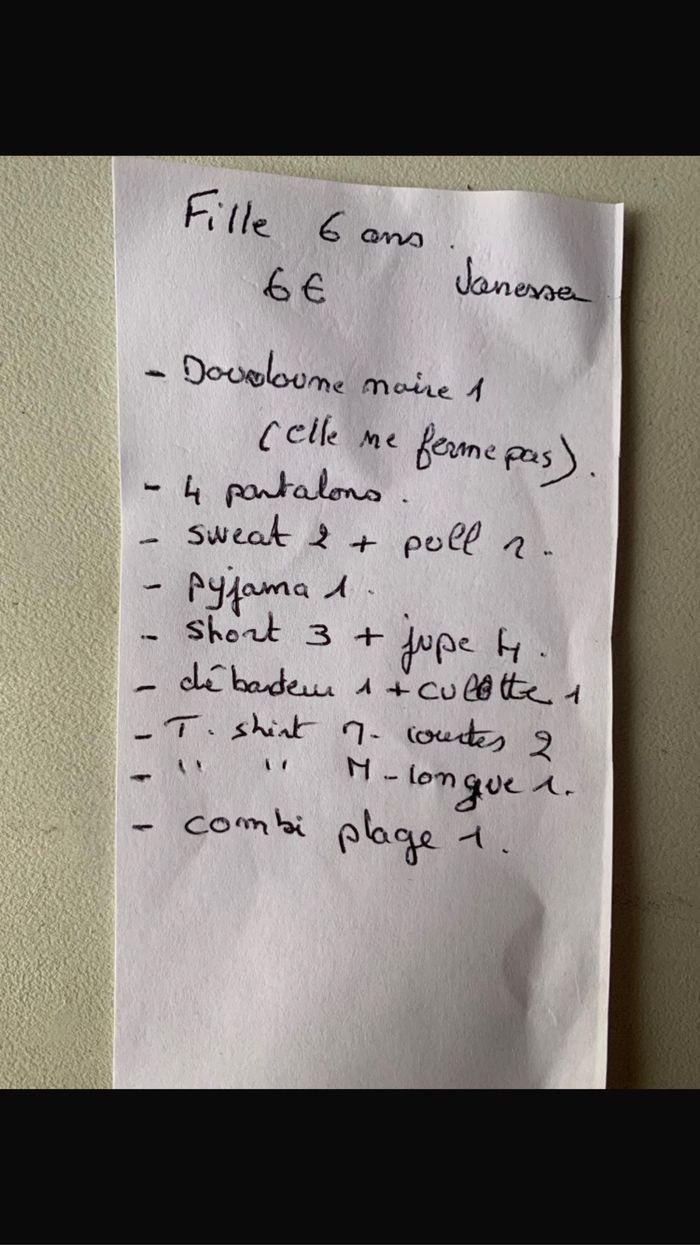 Fille 6 ans.
6€ Vanessa
- Doudoune noire 1
(elle ne ferme pas).
- 4 pantalons.
- sweat 2 + pull 1.
- pyjama 1.
- short 3 + jupe 4.
- débardeur 1 + culotte 1
- T. shirt M- courtes 2
- " " M-longue 1.
- combi plage 1.